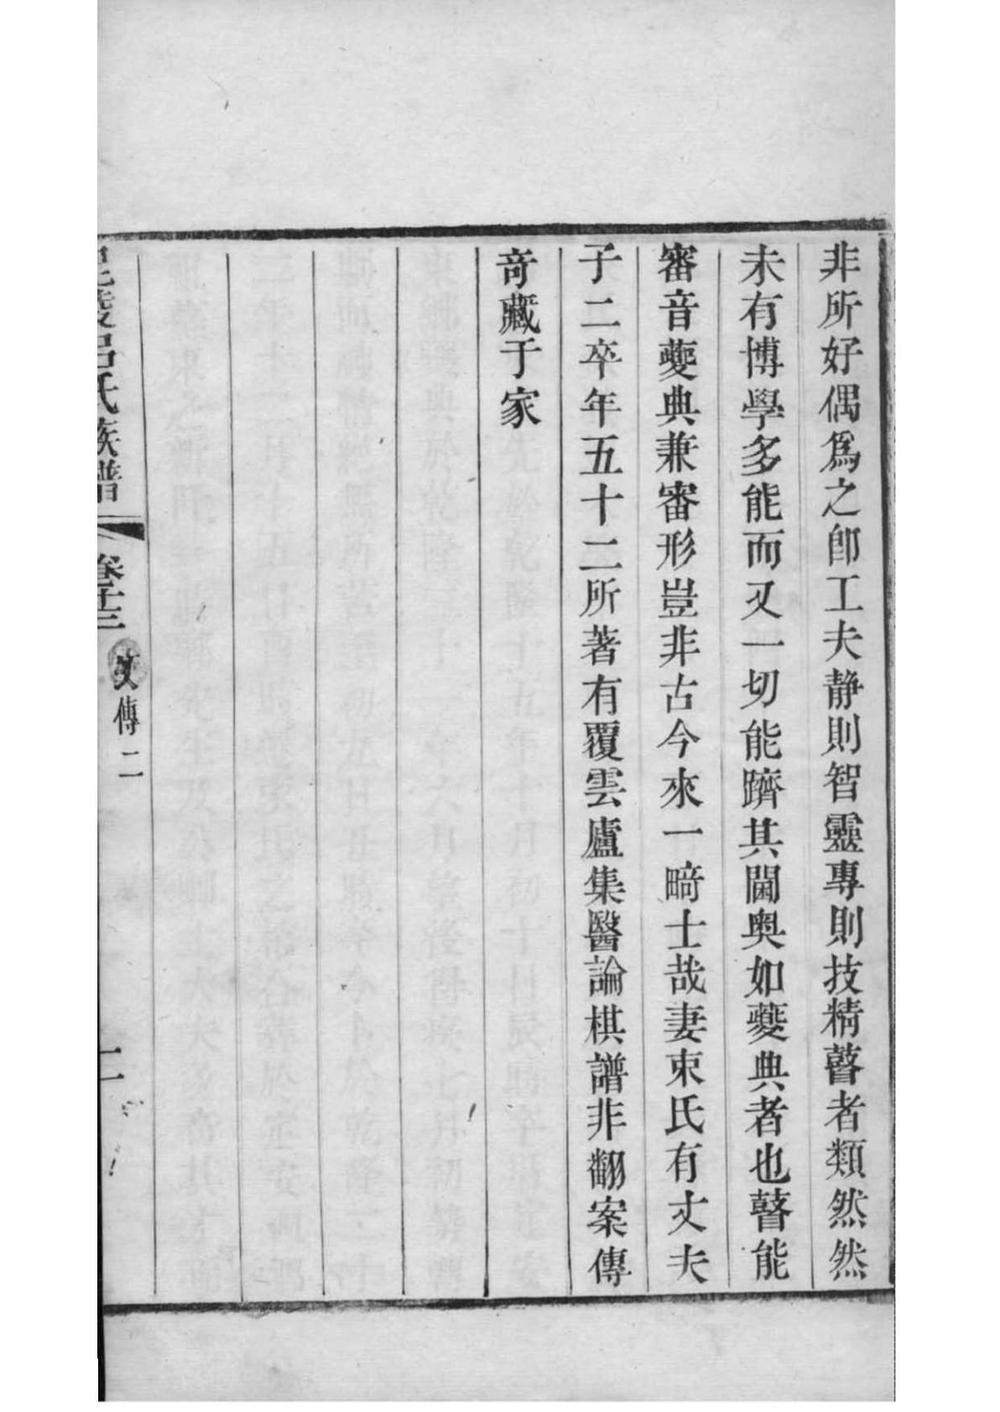 非所好偶爲之卽工夫静則智靈專則技精瞽者類然然
未有博學多能而又一切能躋其閫奥如夔典者也瞽能
審音夔典兼審形豈非古今來一畸士哉妻束氏有丈夫
子二卒年五十二所著有覆雲廬集醫論棋譜非翻案傳
奇藏于家
毘陵呂氏族譜 卷十三 文傳二 二